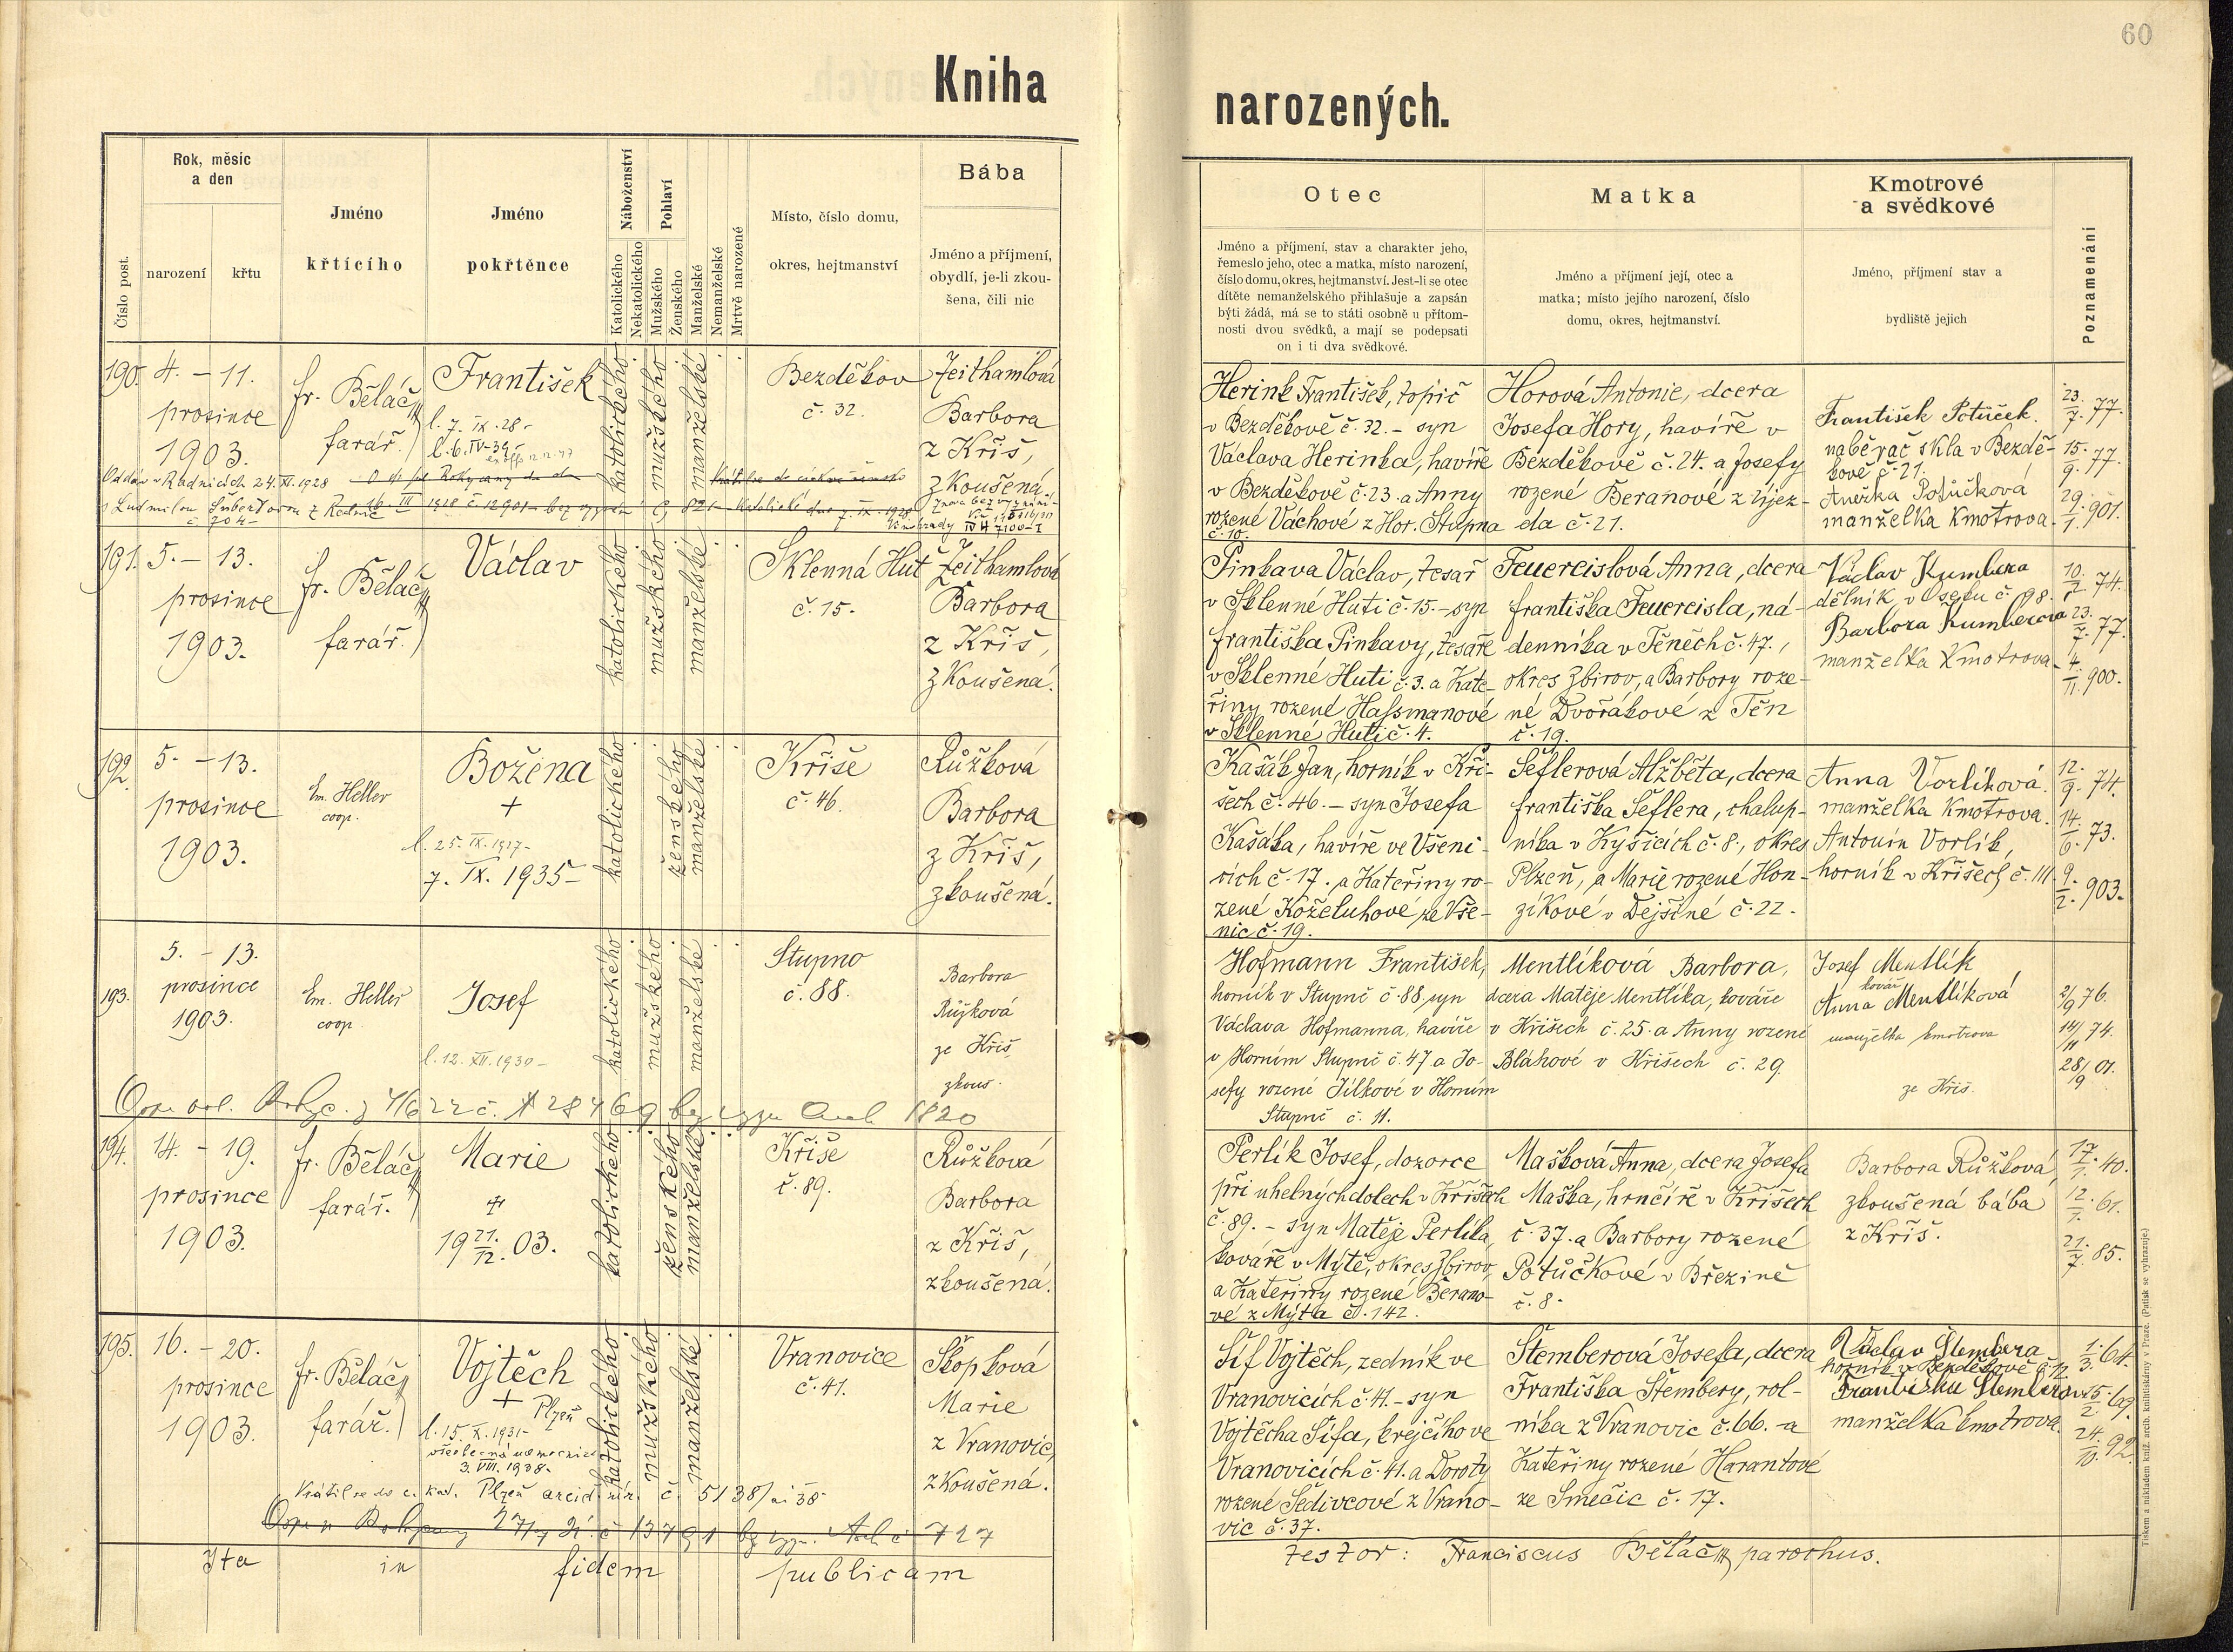 60
Kniha
narozených.
Číslo post.
Rok, měsíc
a den
narození
křtu
Jméno
křtícího
Jméno
pokřtěnce
Náboženství
Katolického
Nekatolického
Pohlaví
Mužského
Ženského
Manželské
Nemanželské
Mrtvě narozené
Místo, číslo domu,
okres, hejtmanství
Bába
Jméno a příjmení,
obydlí, je-li zkou-
šena, čili nic
Otec
Jméno a příjmení, stav a charakter jeho,
řemeslo jeho, otec a matka, místo narození,
číslo domu, okres, hejtmanství. Jest-li se otec
dítěte nemanželského přihlašuje a zapsán
býti žádá, má se to státi osobně u přítom-
nosti dvou svědků, a mají se podepsati
on i ti dva svědkové.
Matka
Jméno a příjmení její, otec a
matka; místo jejího narození, číslo
domu, okres, hejtmanství.
Kmotrové
a svědkové
Jméno, příjmení stav a
bydliště jejich
Poznamenání
190.
4. – 11.
prosince
1903.
fr. Běláč
farář.
František
l. 7. IX. 28 -
l. 6. IV - 39 -
katolického
mužského
manželské
Bezděkov
č. 32.
Zeithamlová
Barbora
z Kříš,
zkoušená.
Oddán v Radnicích 24. XI. 1928
s Ludmilou Šubertovou z Radnic
č 204 -
Herink František, topič
v Bezděkově č. 32. – syn
Václava Herinka, havíře
v Bezděkově č. 23. a Anny
rozené Váchové z Hor. Stupna
č. 10.
Horová Antonie, dcera
Josefa Hory, havíře v
Bezděkově č. 24. a Josefy
rozené Beranové z Újez-
da č. 21.
František Potůček.
naběrač skla v Bezdě-
kově č. 21.
Anežka Potůčková
manželka Kmotrova.
23.
7. 77.
15.
9. 77.
29.
1. 901.
191.
5. – 13.
prosince
1903.
fr. Běláč
farář.
Václav
katolického
mužského
manželské
Sklenná Huť
č. 15.
Zeithamlová
Barbora
z Kříš,
zkoušená.
Pinkava Václav, tesař
v Sklenné Huti č. 15. – syn
františka Pinkavy, tesaře
v Sklenné Huti č. 3. a Kate-
řiny rozené Hassmanové
v Sklenné Huti č. 4.
Feuereislová Anna, dcera
františka Feuereisla, ná-
denníka v Těněch č. 47.,
okres Zbirov, a Barbory roze-
né Dvořákové z Těn
č. 19.
Václav Kumbera
dělník v Oseku č. 98.
Barbora Kumberova
manželka Kmotrova.
10.
2. 74.
23.
7. 77.
4.
11. 900.
192.
5. – 13.
prosince
1903.
Em. Heller
coop.
Božena
+
l. 25. IX. 1927 -
7. IX. 1935 -
katolického
ženského
manželské
Kříše
č. 46.
Růžková
Barbora
z Kříš,
zkoušená.
Kašák Jan, horník v Kří-
šech č. 46. – syn Josefa
Kašáka, havíře ve Všeni-
cích č. 17. a Kateřiny ro-
zené Koželuhové ze Vše-
nic č. 19.
Šeflerová Alžběta, dcera
františka Šeflera, chalup-
níka v Kyšicích č. 8., okres
Plzeň, a Marie rozené Hon-
zíkové v Dejšině č. 22.
Anna Vorlíková.
manželka Kmotrova.
Antonín Vorlík,
horník v Kříšech č. 111.
12.
9. 74.
14.
6. 73.
9.
2. 903.
193.
5. – 13.
prosince
1903.
Em. Heller
coop.
Josef
l. 12. XII. 1930 -
katolického
mužského
manželské
Stupno
č. 88.
Barbora
Růžková
ze Kříš,
zkouš.
Hofmann František,
horník v Stupně č. 88. syn
Václava Hofmanna, havíře
v Horním Stupně č. 47 a Jo-
sefy rozené Jílkové v Horním
Stupně č. 11.
Mentlíková Barbora,
dcera Matěje Mentlíka, kováře
v Kříšech č. 25. a Anny rozené
Bláhové v Kříšech č. 29.
Josef Mentlík
kovář
Anna Mentlíková
manželka kmotrova
ze Kříš.
2/9 76.
14/11 74.
28/19 01.
194.
14. – 19.
prosince
1903.
fr. Běláč
farář.
Marie
+
19 21./12. 03.
katolického
ženského
manželské
Kříše
č. 89.
Růžková
Barbora
z Kříš,
zkoušená.
Perlík Josef, dozorce
při uhelných dolech v Kříšech
č. 89. – syn Matěje Perlíka,
kováře v Mýtě, okres Zbirov,
a Kateřiny rozené Berano-
vé z Mýta č. 142.
Mašková Anna, dcera Josefa
Maška, hrnčíře v Kříšech
č. 37. a Barbory rozené
Potůčkové v Březině
č. 8.
Barbora Růžková,
zkoušená bába
z Kříš.
17.
1. 40.
12.
1. 61.
21.
7. 85.
195.
16. – 20.
prosince
1903.
fr. Běláč
farář.
Vojtěch
+ Plzeň
l. 15. X. 1931 -
všeobecná nemocnice
3. VIII. 1938 -
katolického
mužského
manželské
Vranovice
č. 41.
Skopková
Marie
z Vranovic,
zkoušená.
Vrátil se do c. kat. Plzeň arcid. č. 5138/
Šíf Vojtěch, zedník ve
Vranovicích č. 41. – syn
Vojtěcha Šífa, krejčího ve
Vranovicích č. 41. a Doroty
rozené Šedivcové z Vrano-
vic č. 37.
Štemberová Josefa, dcera
Františka Štembery, rol-
níka z Vranovic č. 66. a
Kateřiny rozené Harantové
ze Smečic č. 17.
Václav Štembera
horník v Bezděkově č. 12
Františka Štemberová
manželka kmotrova.
1.
3. 64.
25.
2. 69.
24.
10. 92.
Ita in fidem publicam
testor: Franciscus Běláč parochus.
Tiskem a nákladem kníž. arcib. knihtiskárny v Praze. (Patisk se vyhrazuje.)